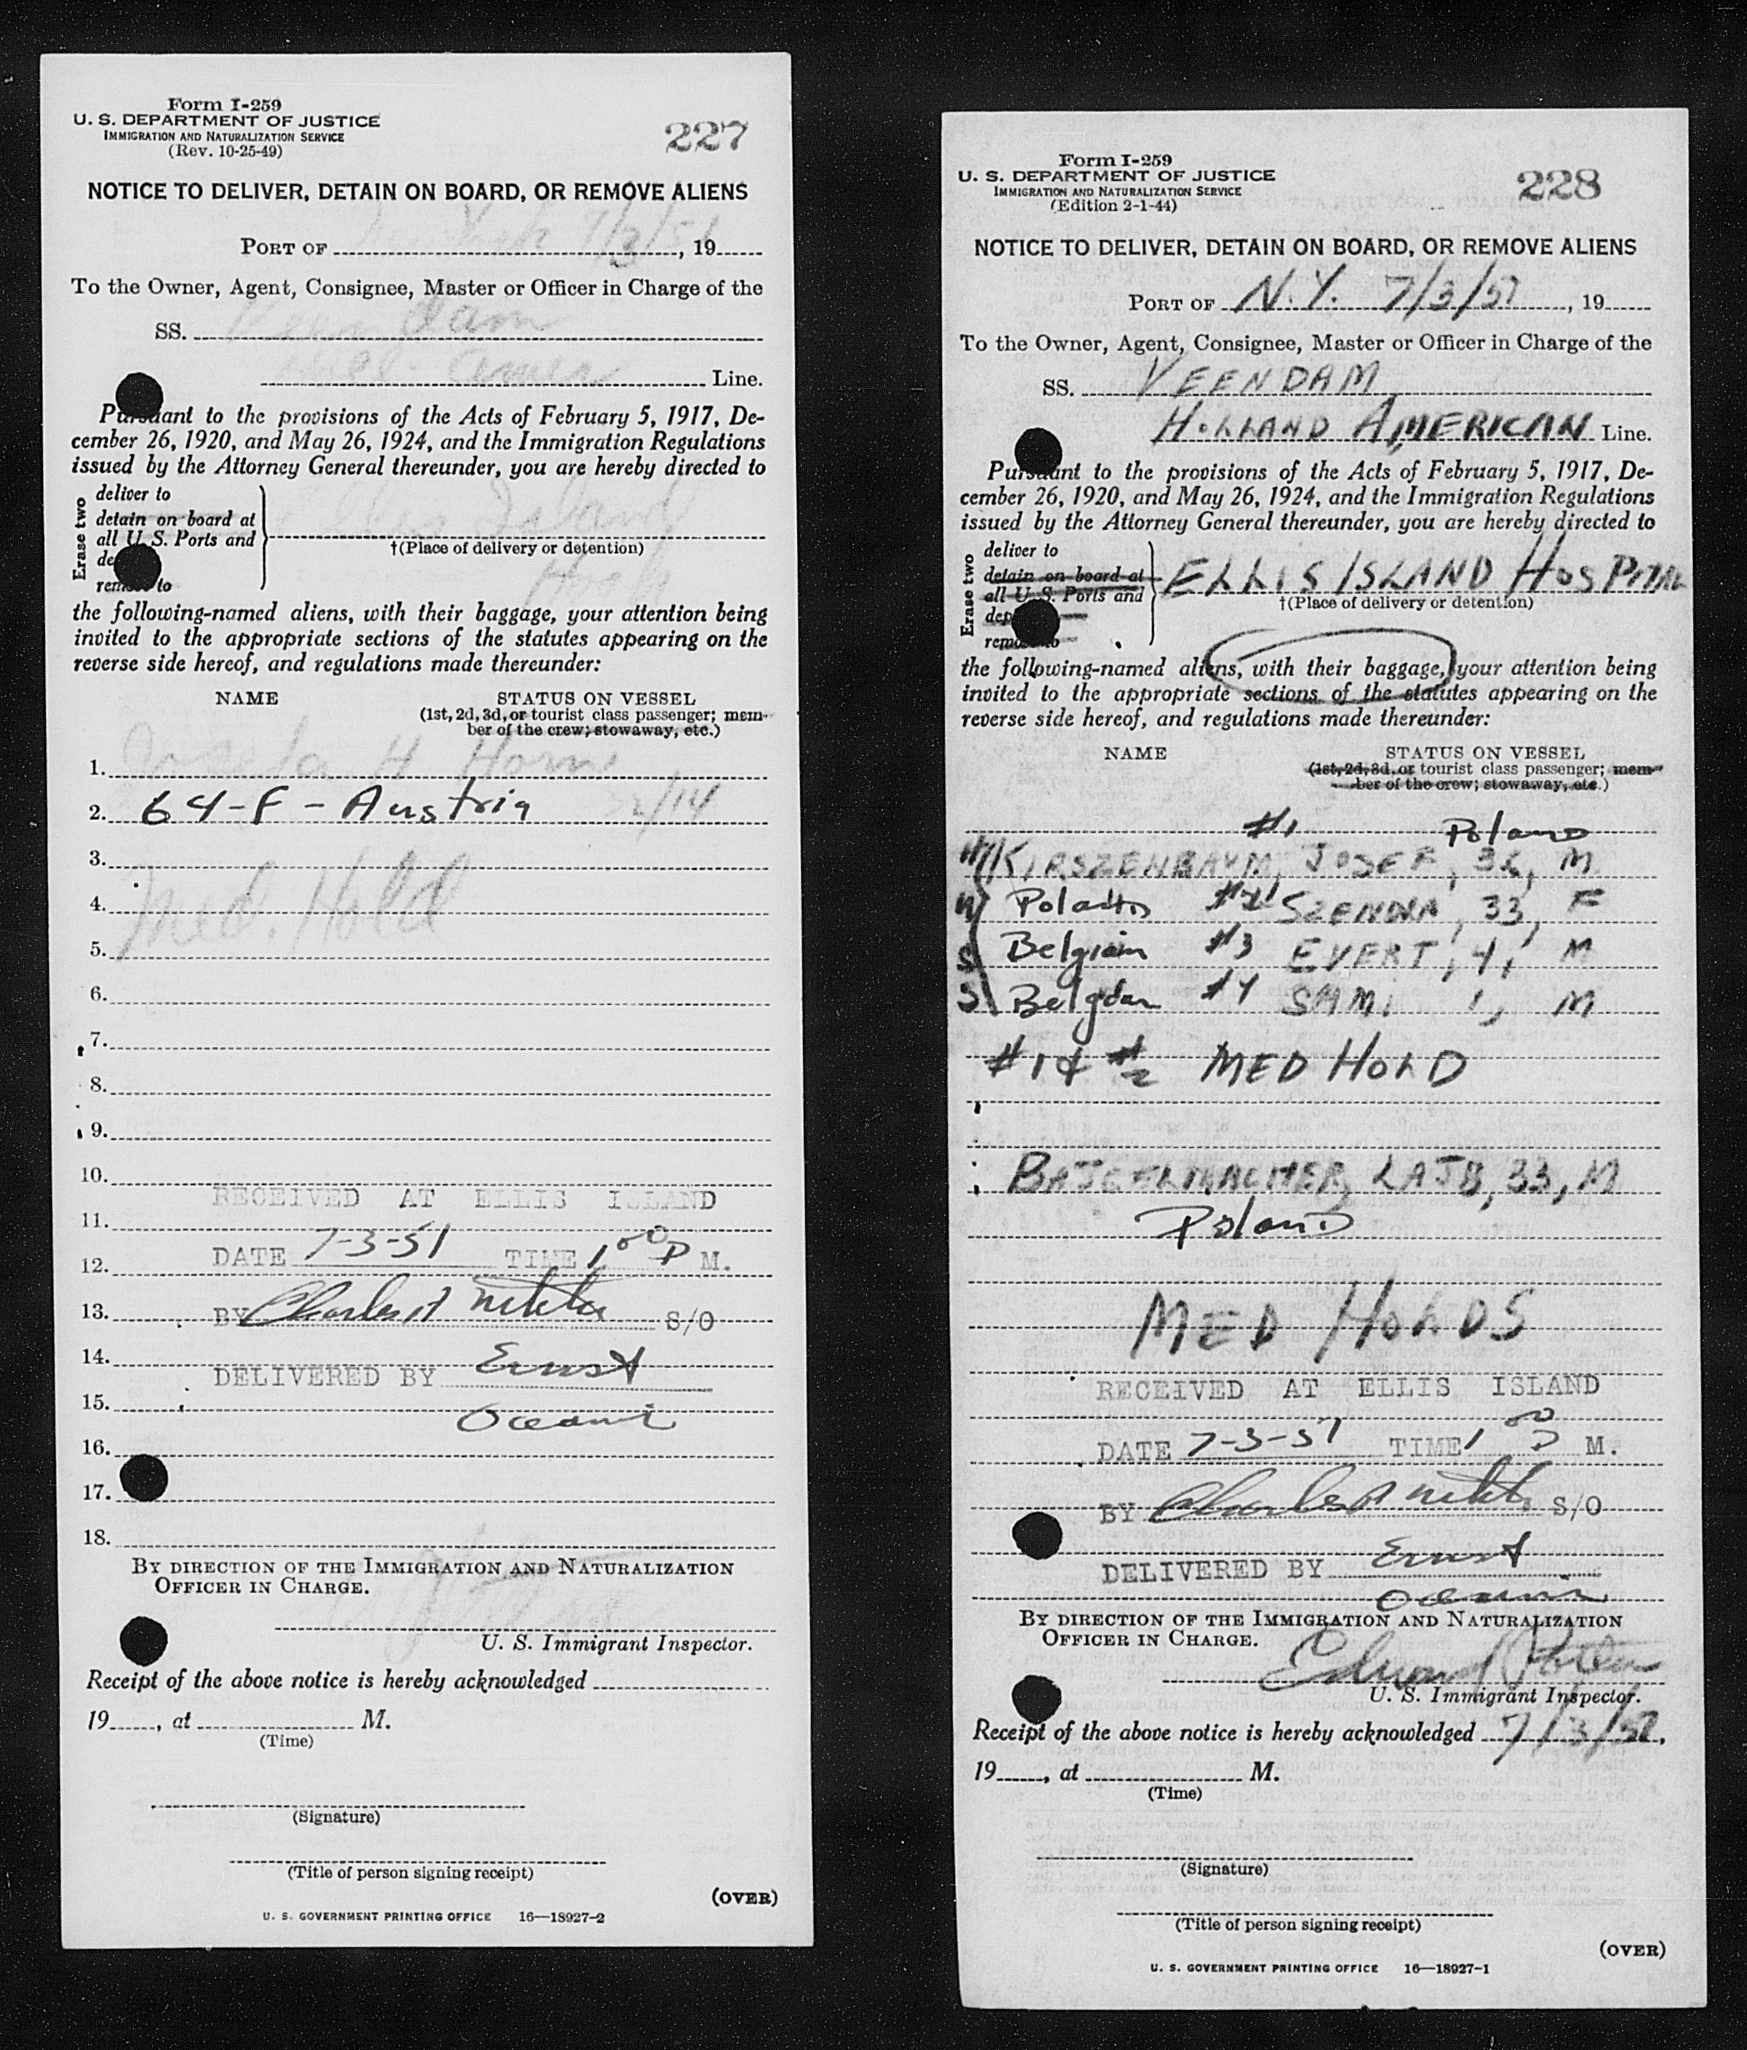 Form I-259
U. S. DEPARTMENT OF JUSTICE
IMMIGRATION AND NATURALIZATION SERVICE
(Rev. 10-25-49)
227
NOTICE TO DELIVER, DETAIN ON BOARD, OR REMOVE ALIENS
PORT OF 7/3/51, 19
To the Owner, Agent, Consignee, Master or Officer in Charge of the
SS. Veendam
Hol- Amer Line.
Pursuant to the provisions of the Acts of February 5, 1917, De-
cember 26, 1920, and May 26, 1924, and the Immigration Regulations
issued by the Attorney General thereunder, you are hereby directed to
Erase two
deliver to
detain on board at
all U. S. Ports and
remove to
Ellis Island
†(Place of delivery or detention)
Hosp
the following-named aliens, with their baggage, your attention being
invited to the appropriate sections of the statutes appearing on the
reverse side hereof, and regulations made thereunder:
NAME STATUS ON VESSEL
(1st, 2d, 3d, or tourist class passenger; mem-
ber of the crew; stowaway, etc.)
1. H Horn
2. 64-F-Austria /14
3.
Med. Hold
4.
5.
6.
7.
8.
9.
10.
RECEIVED AT ELLIS ISLAND
11.
DATE 7-3-51 TIME 1 00 P M.
12.
13. BY Charles A S/O
14.
DELIVERED BY Ernst
15.
16.
17.
18.
BY DIRECTION OF THE IMMIGRATION AND NATURALIZATION
OFFICER IN CHARGE.
U. S. Immigrant Inspector.
Receipt of the above notice is hereby acknowledged
19, at M.
(Time)
(Signature)
(Title of person signing receipt)
(OVER)
U. S. GOVERNMENT PRINTING OFFICE 16—18927-2
Form I-259
U. S. DEPARTMENT OF JUSTICE
IMMIGRATION AND NATURALIZATION SERVICE
(Edition 2-1-44)
228
NOTICE TO DELIVER, DETAIN ON BOARD, OR REMOVE ALIENS
PORT OF N.Y. 7/3/51, 19
To the Owner, Agent, Consignee, Master or Officer in Charge of the
SS. VEENDAM
HOLLAND AMERICAN Line.
Pursuant to the provisions of the Acts of February 5, 1917, De-
cember 26, 1920, and May 26, 1924, and the Immigration Regulations
issued by the Attorney General thereunder, you are hereby directed to
Erase two
deliver to
detain on board at
all U. S. Ports and
remove to
ELLIS ISLAND HOSPITAL
†(Place of delivery or detention)
the following-named aliens, with their baggage, your attention being
invited to the appropriate sections of the statutes appearing on the
reverse side hereof, and regulations made thereunder:
NAME STATUS ON VESSEL
(1st, 2d, 3d, or tourist class passenger; mem-
ber of the crew; stowaway, etc.)
#1 Poland
H KIRSZENBAUM, JOSEF, M
W #2 33, F
S Belgian #3 EVERT, 4, M
S #4 SAMI 1, M
#1 & #2 MED HOLD
33, M
Poland
MED HOLDS
RECEIVED AT ELLIS ISLAND
DATE 7-3-51 TIME 1 00 P M.
BY Charles A S/O
DELIVERED BY Ernst
BY DIRECTION OF THE IMMIGRATION AND NATURALIZATION
OFFICER IN CHARGE.
Edward
U. S. Immigrant Inspector.
Receipt of the above notice is hereby acknowledged 7/3/51,
19, at M.
(Time)
(Signature)
(Title of person signing receipt)
(OVER)
U. S. GOVERNMENT PRINTING OFFICE 16—18927-1